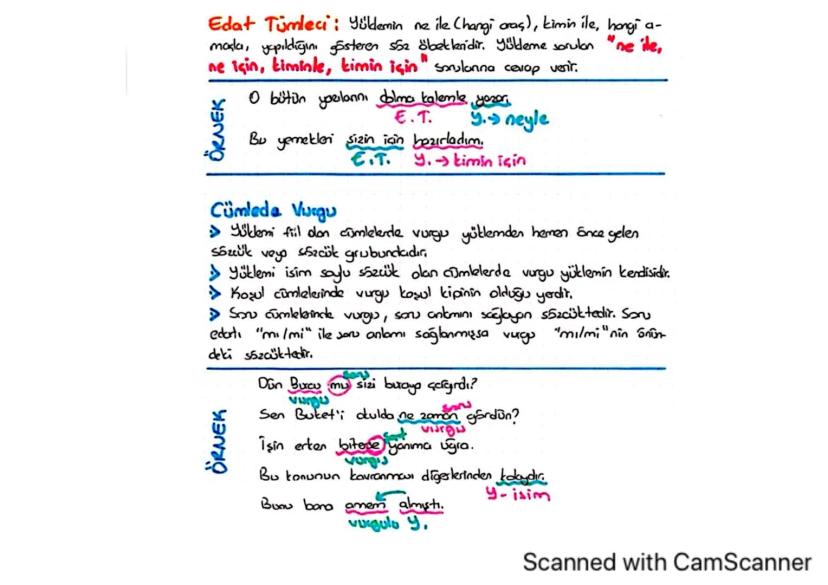 Edat Tümleci: Yüklemin ne ile (hangi araç), kimin ile, hangi a-
maçla, yapıldığını gösteren söz öbekleridir. Yükleme sorulan "ne ile,
ne için, kiminle, kimin için" sorularına cevap verir.
ÖRNEK
O bütün yazılarını dolma kalemle yazar.
E.T. Y.→ neyle
Bu yemekleri sizin için hazırladım.
E.T. Y.→ kimin için
Cümlede Vurgu
> Yüklemi fiil olan cümlelerde vurgu yüklemden hemen önce gelen
sözcük veya sözcük grubundadır.
> Yüklemi isim soylu sözcük olan cümlelerde vurgu yüklemin kendisidir.
> Koşul cümlelerinde vurgu koşul kipinin olduğu yerdir.
> Soru cümlelerinde vurgu, soru anlamını sağlayan sözcüktedir. Soru
edatı "mı/mi" ile soru anlamı sağlanmışsa vurgu "mı/mi"nin önün-
deki sözcüktedir.
ÖRNEK
Dün Burcu mu sizi buraya çağırdı?
soru
vurgu
Sen Buket'i okulda ne zaman gördün?
soru
vurgu
İşin erken biterse yanıma uğra.
şart
vurgu
Bu konunun kavranması diğerlerinden kolaydır.
Y-isim
Bunu bana annem almıştı.
vurgulu Y.
Scanned with CamScanner